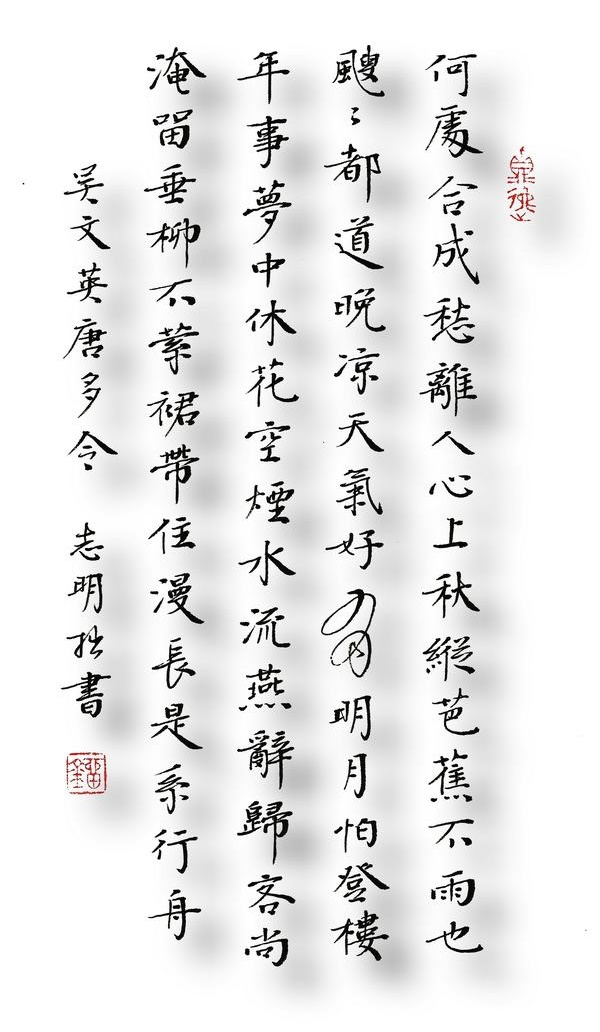 何處合成愁離人心上秋縱芭蕉不雨也
颼〻都道晚凉天氣好有明月怕登樓
年事夢中休花空煙水流燕辭歸客尚
淹留垂柳不縈裙帶住漫長是系行舟
吳文英唐多令 志明拙書